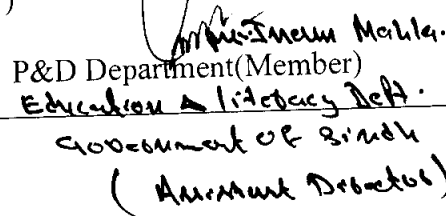 )
Mahla.
P&D Department(Member)
Education & literacy Deptt.
Government of Sindh
( Assistant Director)